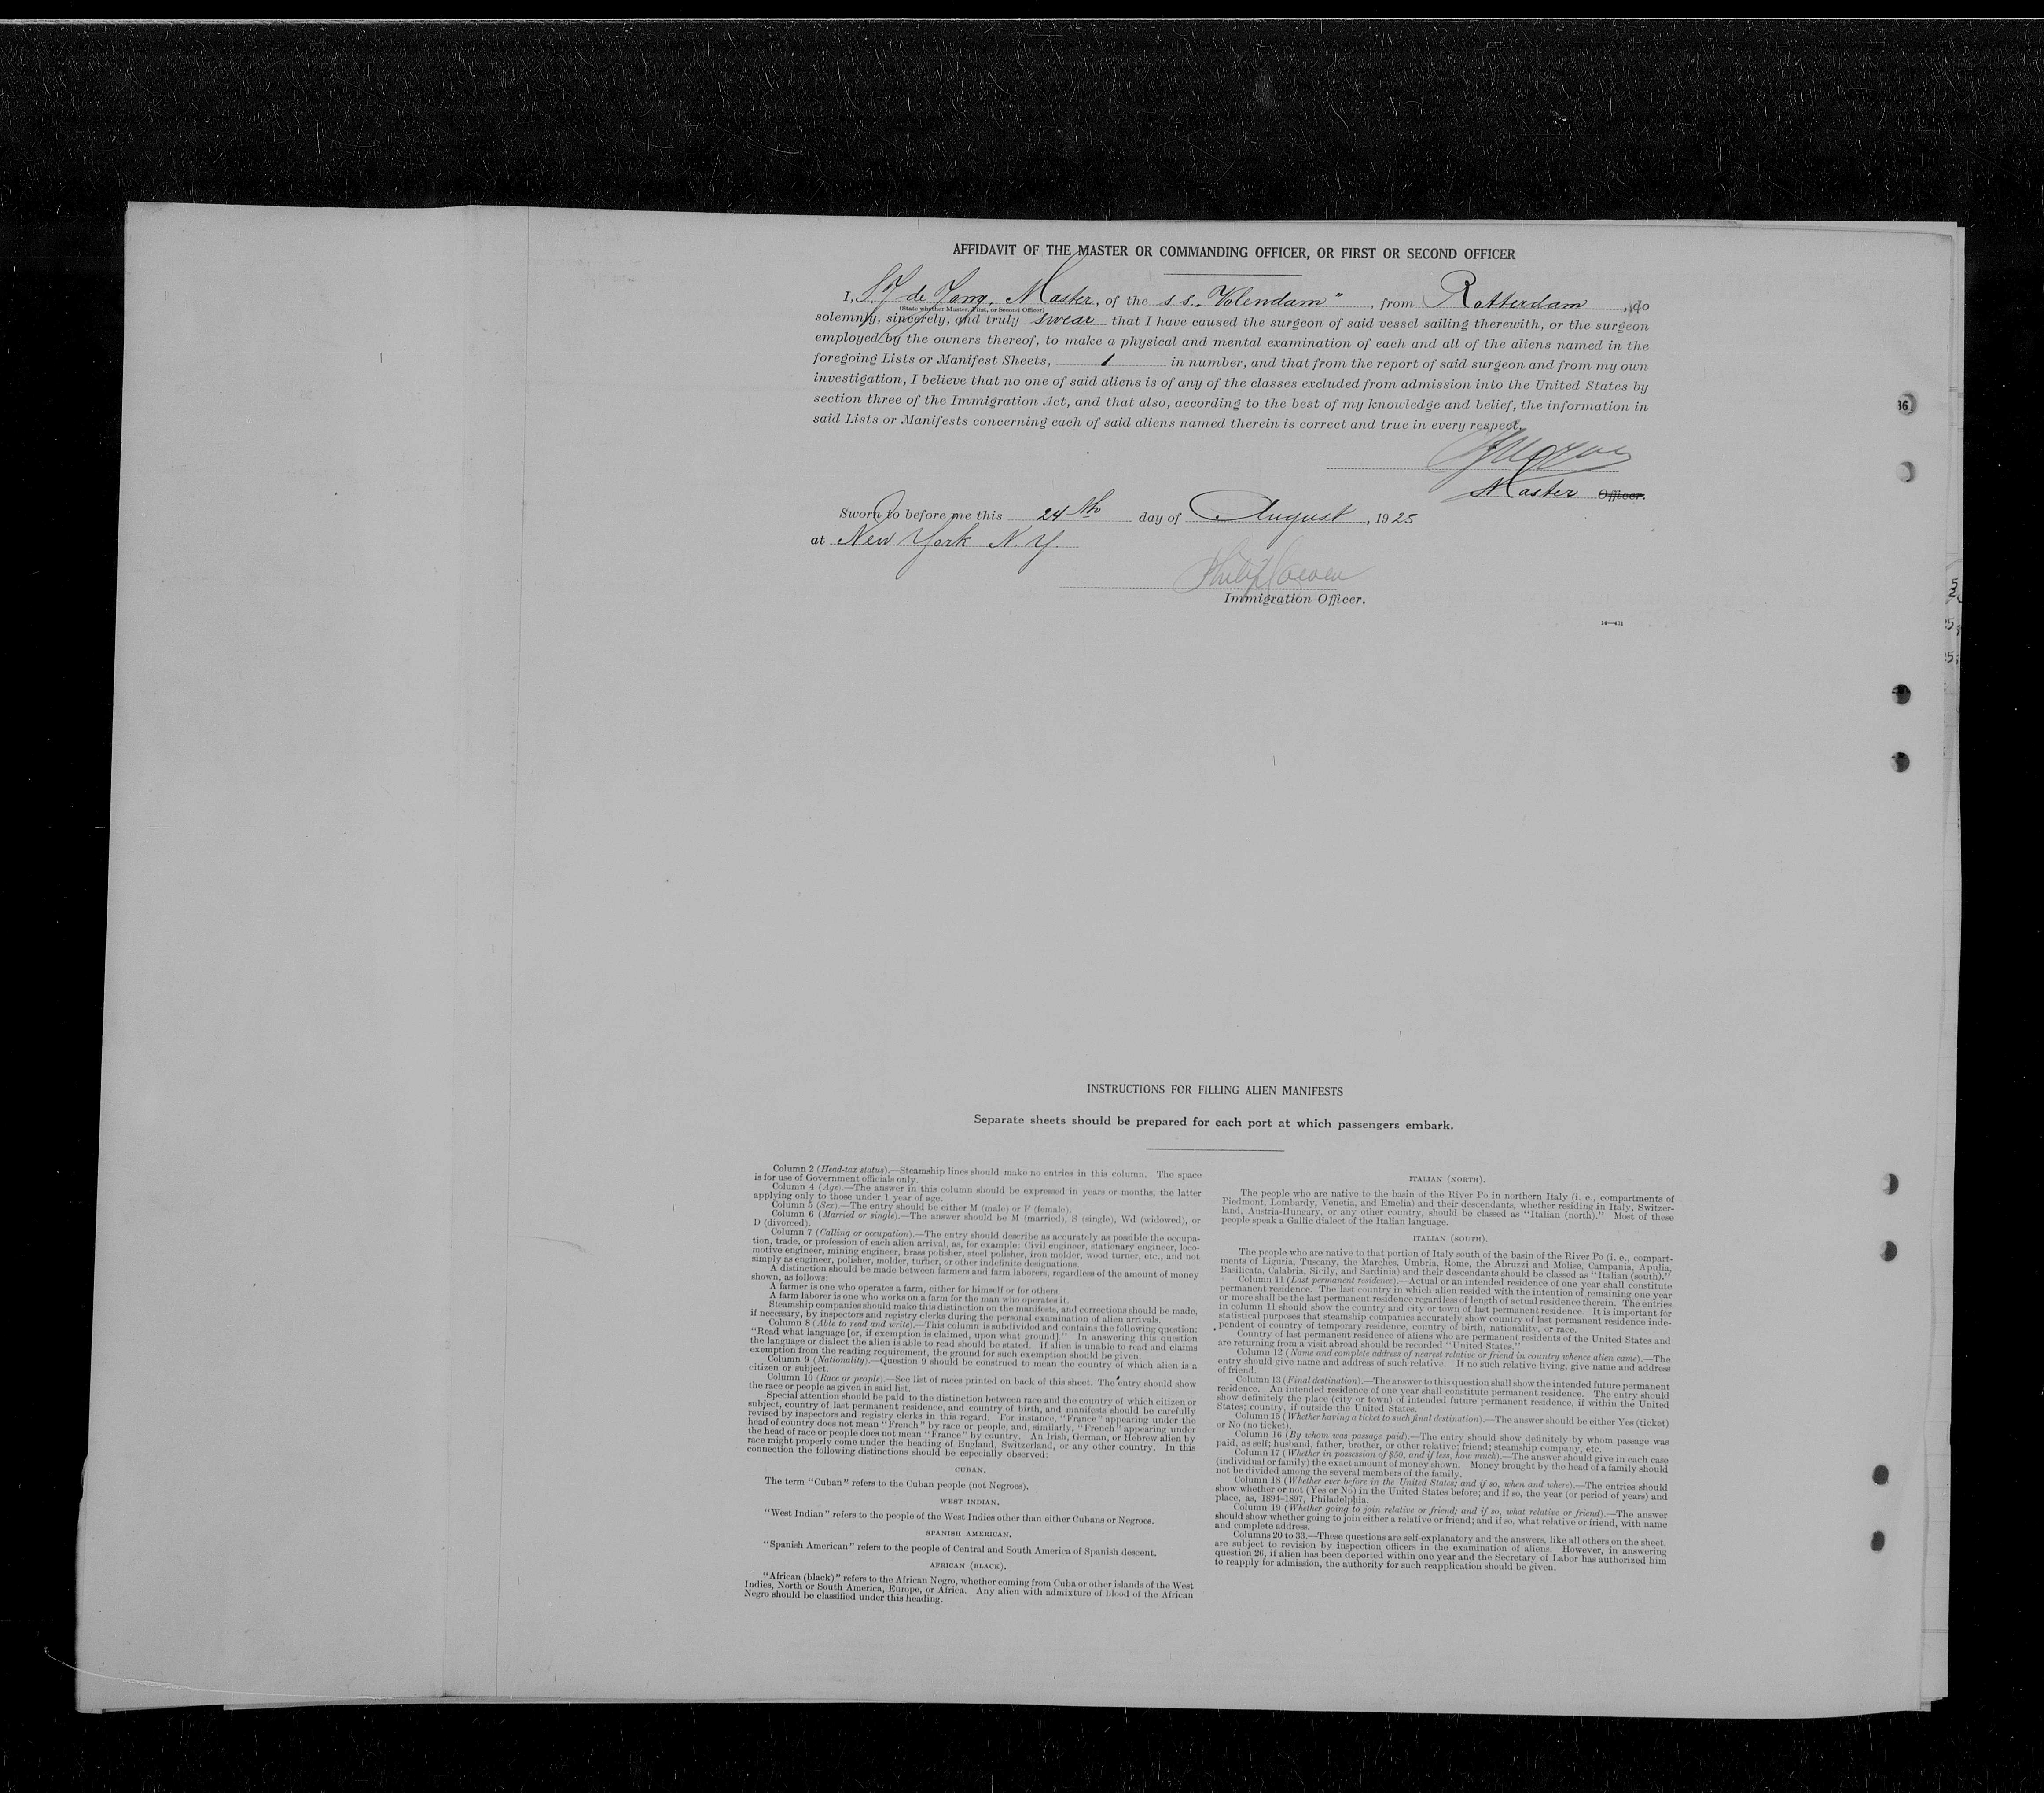 AFFIDAVIT OF THE MASTER OR COMMANDING OFFICER, OR FIRST OR SECOND OFFICER
I, de Jong, Master, of the s.s. "Volendam", from Rotterdam, do
(State whether Master, First, or Second Officer)
solemnly, sincerely, and truly swear that I have caused the surgeon of said vessel sailing therewith, or the surgeon
employed by the owners thereof, to make a physical and mental examination of each and all of the aliens named in the
foregoing Lists or Manifest Sheets, 1 in number, and that from the report of said surgeon and from my own
investigation, I believe that no one of said aliens is of any of the classes excluded from admission into the United States by
section three of the Immigration Act, and that also, according to the best of my knowledge and belief, the information in
said Lists or Manifests concerning each of said aliens named therein is correct and true in every respect.
Master Officer.
Sworn to before me this 24th day of August, 1925
at New York N.Y.
Philip Cowen
Immigration Officer.
14—431
36
INSTRUCTIONS FOR FILLING ALIEN MANIFESTS
Separate sheets should be prepared for each port at which passengers embark.
Column 2 (Head-tax status).—Steamship lines should make no entries in this column. The space
is for use of Government officials only.
Column 4 (Age).—The answer in this column should be expressed in years or months, the latter
applying only to those under 1 year of age.
Column 5 (Sex).—The entry should be either M (male) or F (female).
Column 6 (Married or single).—The answer should be M (married), S (single), Wd (widowed), or
D (divorced).
Column 7 (Calling or occupation).—The entry should describe as accurately as possible the occupa-
tion, trade, or profession of each alien arrival, as, for example: Civil engineer, stationary engineer, loco-
motive engineer, mining engineer, brass polisher, steel polisher, iron molder, wood turner, etc., and not
simply as engineer, polisher, molder, turner, or other indefinite designations.
A distinction should be made between farmers and farm laborers, regardless of the amount of money
shown, as follows:
A farmer is one who operates a farm, either for himself or for others.
A farm laborer is one who works on a farm for the man who operates it.
Steamship companies should make this distinction on the manifests, and corrections should be made,
if necessary, by inspectors and registry clerks during the personal examination of alien arrivals.
Column 8 (Able to read and write).—This column is subdivided and contains the following question:
"Read what language [or, if exemption is claimed, upon what ground]." In answering this question
the language or dialect the alien is able to read should be stated. If alien is unable to read and claims
exemption from the reading requirement, the ground for such exemption should be given.
Column 9 (Nationality).—Question 9 should be construed to mean the country of which alien is a
citizen or subject.
Column 10 (Race or people).—See list of races printed on back of this sheet. The entry should show
the race or people as given in said list.
Special attention should be paid to the distinction between race and the country of which citizen or
subject, country of last permanent residence, and country of birth, and manifests should be carefully
revised by inspectors and registry clerks in this regard. For instance, "France" appearing under the
head of country does not mean "French" by race or people, and, similarly, "French" appearing under
the head of race or people does not mean "France" by country. An Irish, German, or Hebrew alien by
race might properly come under the heading of England, Switzerland, or any other country. In this
connection the following distinctions should be especially observed:
CUBAN.
The term "Cuban" refers to the Cuban people (not Negroes).
WEST INDIAN.
"West Indian" refers to the people of the West Indies other than either Cubans or Negroes.
SPANISH AMERICAN.
"Spanish American" refers to the people of Central and South America of Spanish descent.
AFRICAN (BLACK).
"African (black)" refers to the African Negro, whether coming from Cuba or other islands of the West
Indies, North or South America, Europe, or Africa. Any alien with admixture of blood of the African
Negro should be classified under this heading.
ITALIAN (NORTH).
The people who are native to the basin of the River Po in northern Italy (i. e., compartments of
Piedmont, Lombardy, Venetia, and Emelia) and their descendants, whether residing in Italy, Switzer-
land, Austria-Hungary, or any other country, should be classed as "Italian (north)." Most of these
people speak a Gallic dialect of the Italian language.
ITALIAN (SOUTH).
The people who are native to that portion of Italy south of the basin of the River Po (i. e., compart-
ments of Liguria, Tuscany, the Marches, Umbria, Rome, the Abruzzi and Molise, Campania, Apulia,
Basilicata, Calabria, Sicily, and Sardinia) and their descendants should be classed as "Italian (south)."
Column 11 (Last permanent residence).—Actual or an intended residence of one year shall constitute
permanent residence. The last country in which alien resided with the intention of remaining one year
or more shall be the last permanent residence regardless of length of actual residence therein. The entries
in column 11 should show the country and city or town of last permanent residence. It is important for
statistical purposes that steamship companies accurately show country of last permanent residence inde-
pendent of country of temporary residence, country of birth, nationality, or race.
Country of last permanent residence of aliens who are permanent residents of the United States and
are returning from a visit abroad should be recorded "United States."
Column 12 (Name and complete address of nearest relative or friend in country whence alien came).—The
entry should give name and address of such relative. If no such relative living, give name and address
of friend.
Column 13 (Final destination).—The answer to this question shall show the intended future permanent
residence. An intended residence of one year shall constitute permanent residence. The entry should
show definitely the place (city or town) of intended future permanent residence, if within the United
States; country, if outside the United States.
Column 15 (Whether having a ticket to such final destination).—The answer should be either Yes (ticket)
or No (no ticket).
Column 16 (By whom was passage paid).—The entry should show definitely by whom passage was
paid, as self; husband, father, brother, or other relative; friend; steamship company, etc.
Column 17 (Whether in possession of $50, and if less, how much).—The answer should give in each case
(individual or family) the exact amount of money shown. Money brought by the head of a family should
not be divided among the several members of the family.
Column 18 (Whether ever before in the United States; and if so, when and where).—The entries should
show whether or not (Yes or No) in the United States before; and if so, the year (or period of years) and
place, as, 1894-1897, Philadelphia.
Column 19 (Whether going to join relative or friend; and if so, what relative or friend).—The answer
should show whether going to join either a relative or friend; and if so, what relative or friend, with name
and complete address.
Columns 20 to 33.—These questions are self-explanatory and the answers, like all others on the sheet,
are subject to revision by inspection officers in the examination of aliens. However, in answering
question 26, if alien has been deported within one year and the Secretary of Labor has authorized him
to reapply for admission, the authority for such reapplication should be given.